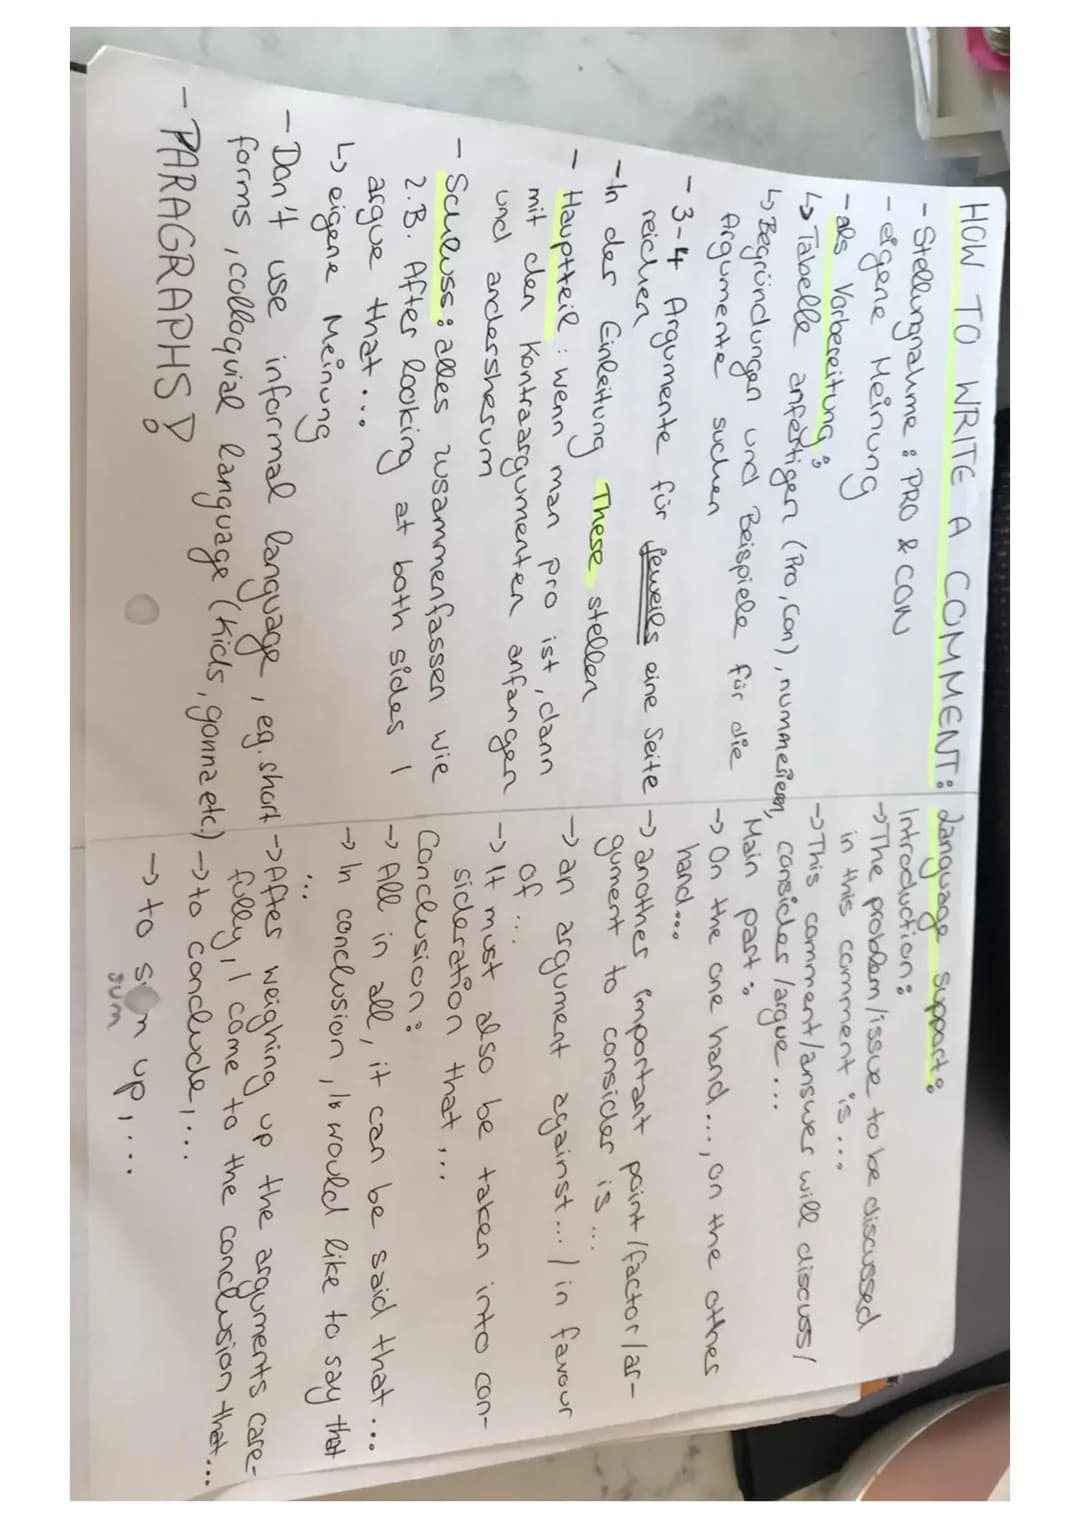 HOW TO WRITE A COMMENT:
- Stellungnahme: PRO & CON
- eigene Meinung
- als Vorbereitung:
↳ Tabelle anfertigen (Pro, Con), nummerieren,
↳ Begründungen und Beispiele für die
Argumente suchen
- 3-4 Argumente für jeweils eine Seite
reichen
- In der Einleitung These stellen
- Hauptteil: wenn man pro ist, dann
mit den Kontraargumenten anfangen
und andersherum
- Schluss: alles zusammenfassen wie
z.B. After looking at both sides I
argue that...
↳ eigene Meinung
- Don't use informal language, eg. short
forms, colloquial language (kids, gonna etc.)
- PARAGRAPHS!
Language support:
Introduction:
→ The problem/issue to be discussed
in this comment is...
→ This comment/answer will discuss/
consider/argue...
Main part:
→ On the one hand..., on the other
hand...
→ another important point/factor/ar-
gument to consider is...
→ an argument against.../in favour
of...
→ It must also be taken into con-
sideration that...
Conclusion:
→ All in all, it can be said that...
→ In conclusion, I would like to say that
...
→ After weighing up the arguments care-
fully, I come to the conclusion that...
→ to conclude,...
→ to sum up,...
sum